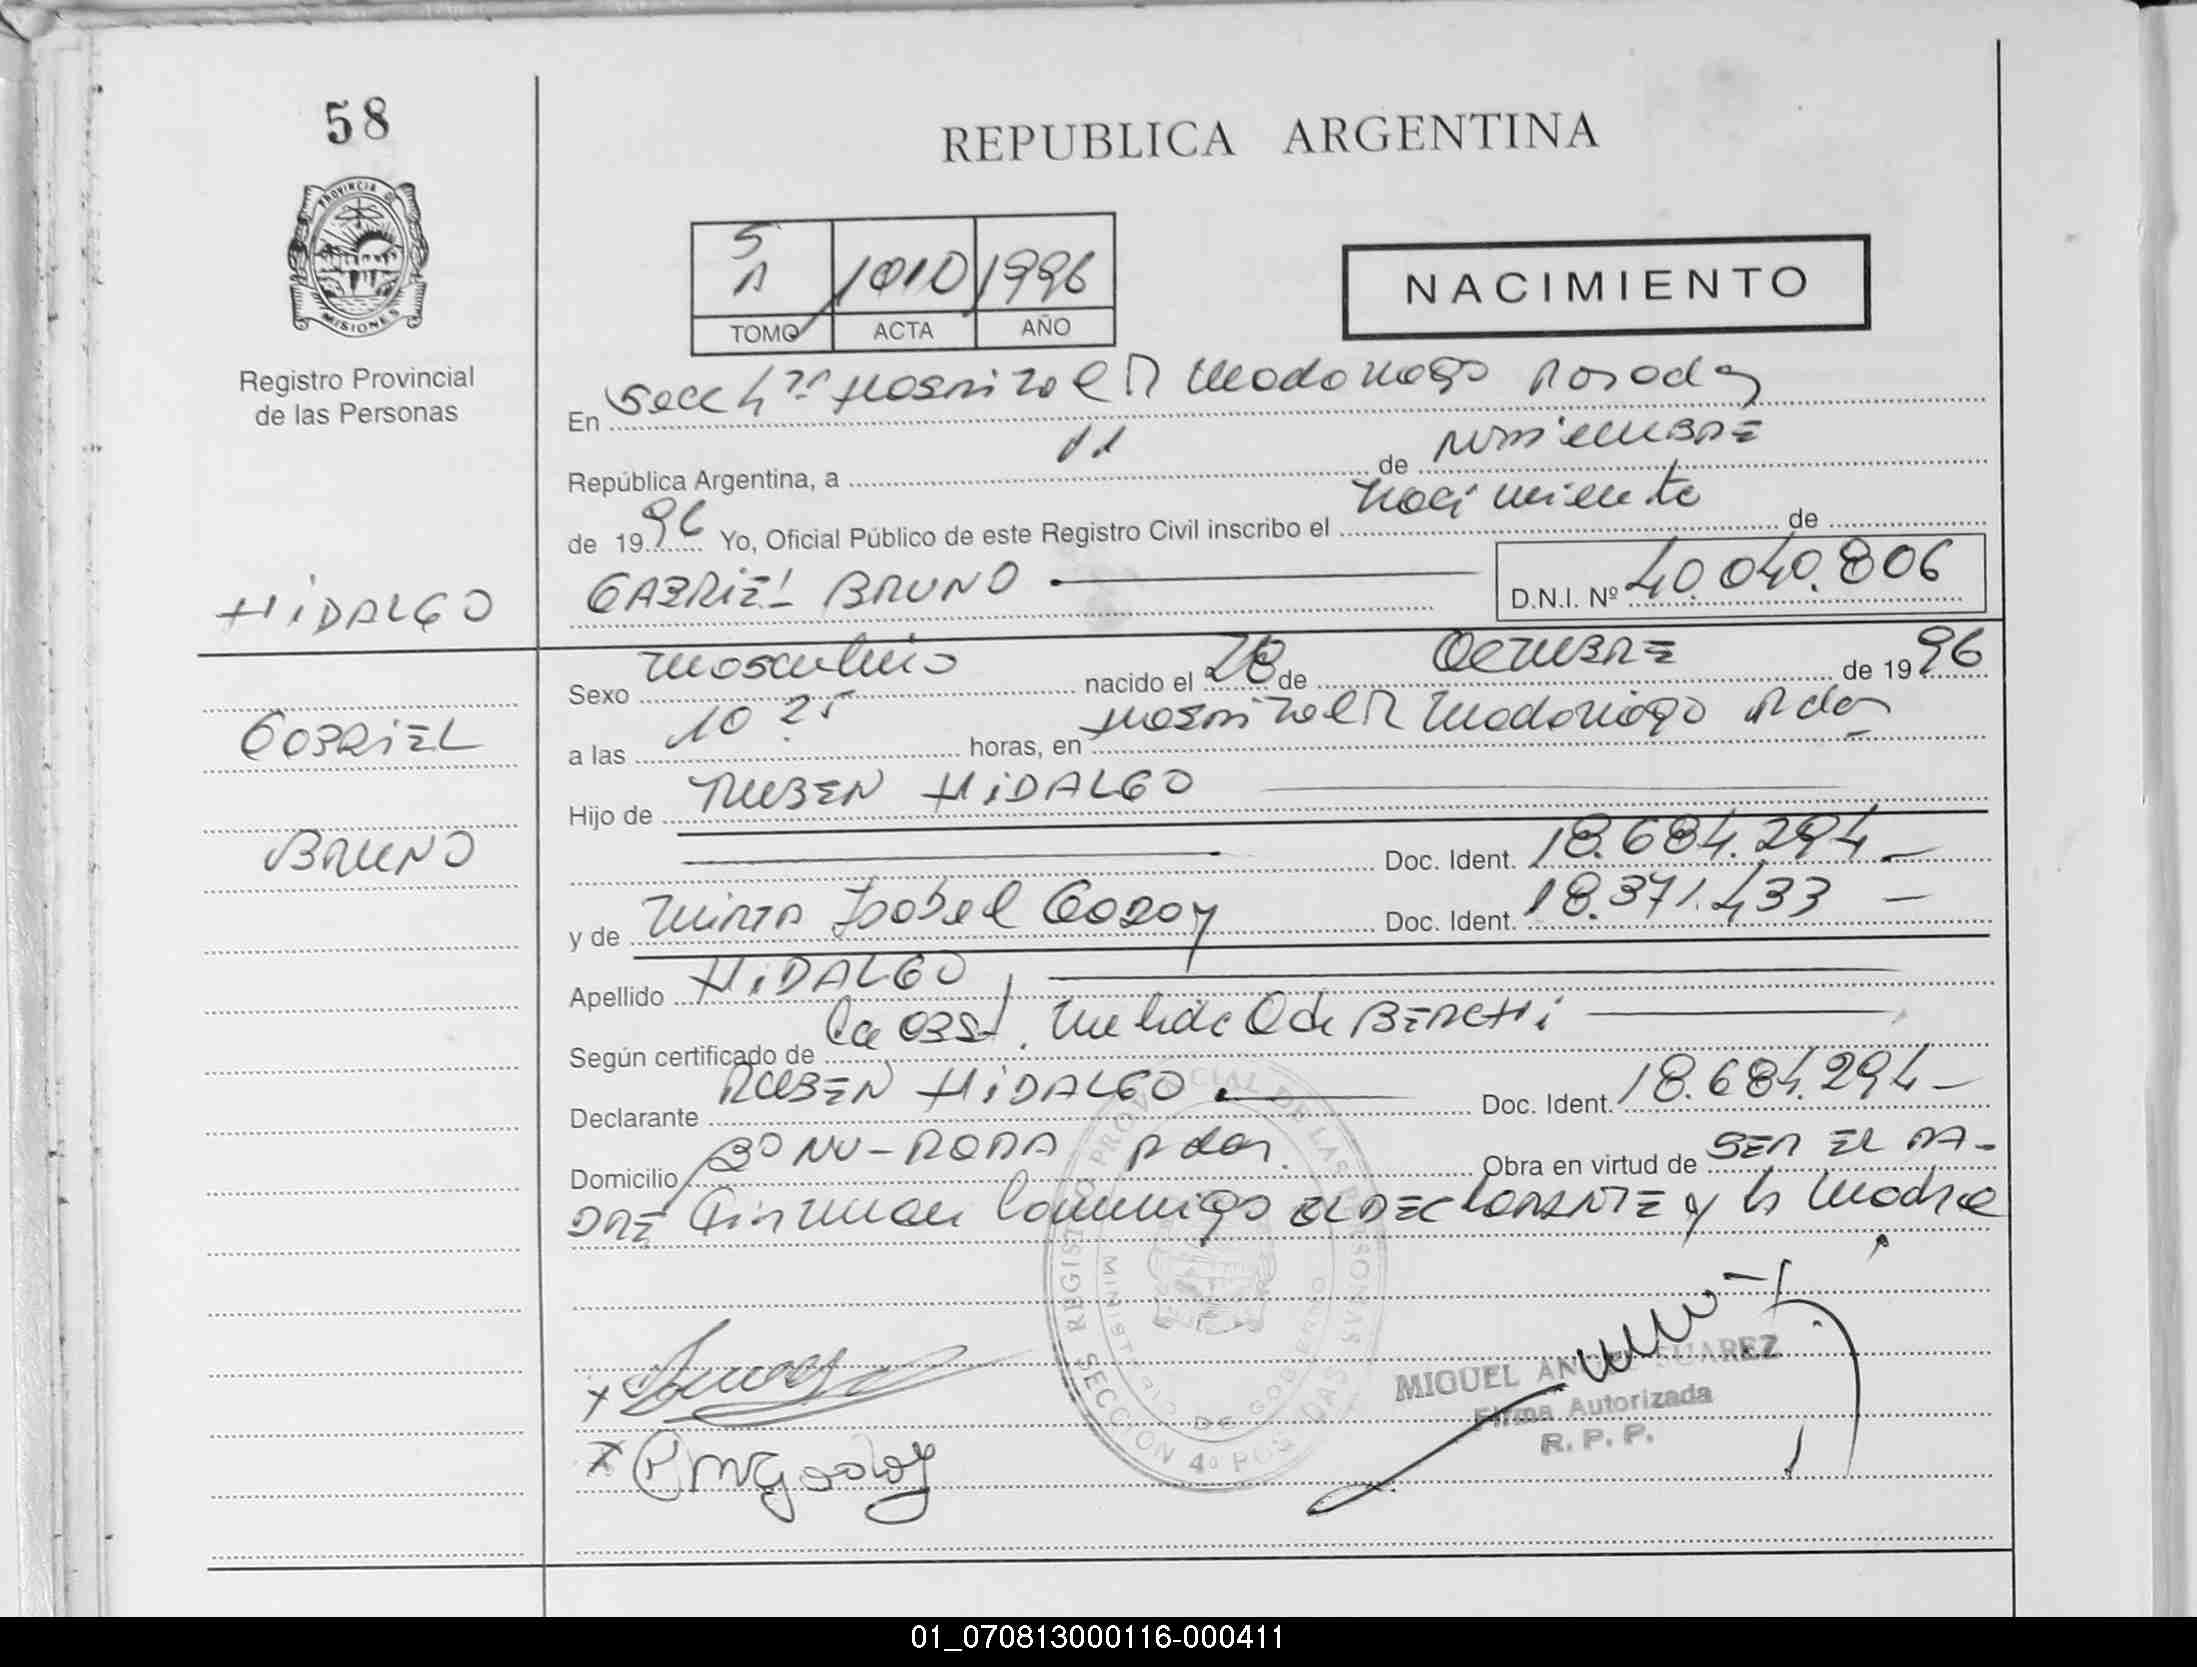 58
REPUBLICA ARGENTINA
PROVINCIA DE
MISIONES
Registro Provincial
de las Personas
5
A 1010 1996
TOMO ACTA AÑO
NACIMIENTO
En Secc 4ta Hospital R Madariaga Posadas
República Argentina, a 11 de Noviembre
de 1996 Yo, Oficial Público de este Registro Civil inscribo el Nacimiento de
HIDALGO
GABRIEL BRUNO
D.N.I. Nº 40.040.806
Sexo Masculino nacido el 28 de OCTUBRE de 1996
GABRIEL
a las 10 25 horas, en Hospital R Madariaga Pdas
Hijo de RUBEN HIDALGO
BRUNO
Doc. Ident. 18.684.294
y de Mirta Isabel Godoy Doc. Ident. 18.371.433
Apellido HIDALGO
Según certificado de La Obst. de
Declarante RUBEN HIDALGO Doc. Ident. 18.684.294
Domicilio Bº Pdas. Obra en virtud de SER EL PA-
DRE Firman Conmigo EL DECLARANTE y la Madre
REGISTRO PROVINCIAL DE LAS PERSONAS
MINISTERIO DE GOBIERNO
SECCION 4º POSADAS
MIGUEL ANGEL SUAREZ
Firma Autorizada
R. P. P.
01_070813000116-000411